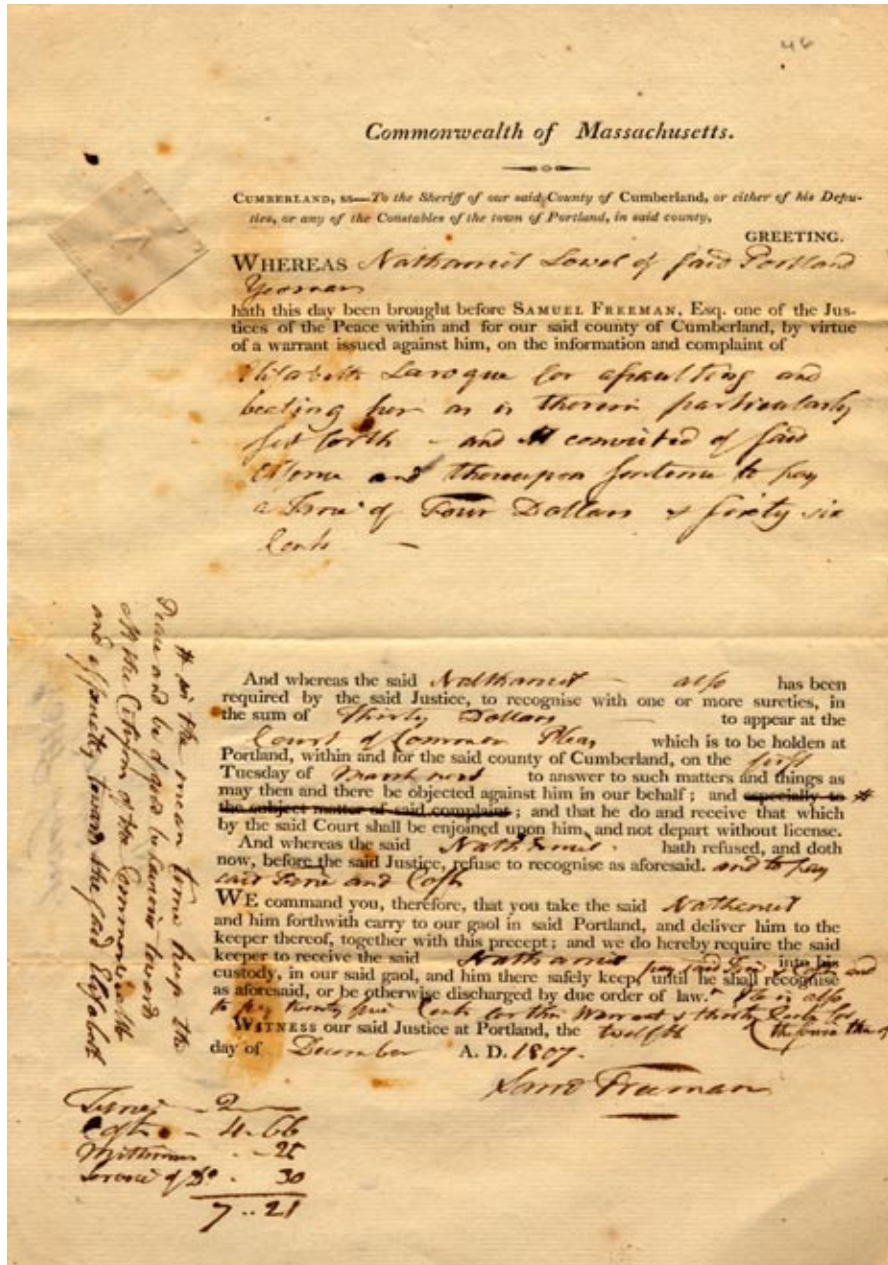 46
Commonwealth of Massachusetts.
CUMBERLAND, ss—To the Sheriff of our said County of Cumberland, or either of his Depu-
ties, or any of the Constables of the town of Portland, in said county,
GREETING.
WHEREAS Nathaniel Lowel of said Portland
Yeoman
hath this day been brought before SAMUEL FREEMAN, Esq. one of the Jus-
tices of the Peace within and for our said county of Cumberland, by virtue
of a warrant issued against him, on the information and complaint of
Elisabeth Laroque for assaulting and
beating her as is therein particularly
set forth – and convicted of said
Crime and thereupon sentence to pay
a Fine of Four Dollars & sixty six
Cents –
And whereas the said Nathaniel – also has been
required by the said Justice, to recognise with one or more sureties, in
the sum of thirty Dollars – to appear at the
Court of Common Pleas which is to be holden at
Portland, within and for the said county of Cumberland, on the first
Tuesday of March next to answer to such matters and things as
may then and there be objected against him in our behalf; and especially to #
the subject matter of said complaint; and that he do and receive that which
by the said Court shall be enjoined upon him, and not depart without license.
And whereas the said Nathaniel hath refused, and doth
now, before the said Justice, refuse to recognise as aforesaid. and to pay
said Fine and Costs
WE command you, therefore, that you take the said Nathaniel
and him forthwith carry to our gaol in said Portland, and deliver him to the
keeper thereof, together with this precept; and we do hereby require the said
keeper to receive the said Nathaniel into his
custody, in our said gaol, and him there safely keep, until he shall recognise
pay said Fine & Costs and
as aforesaid, or be otherwise discharged by due order of law. He is also
to pay twenty five Cents for this Warrant & thirty Cents for
the service thereof
WITNESS our said Justice at Portland, the twelfth
day of December A. D. 1807.
Sam Freeman
# in the mean time keep the
Peace and be of good behavior toward
all the Citizens of the Commonwealth
and especially toward the said Elisabeth
Fine – 2 –
Costs – 4.66
Mittimus . – 25
Service of Do . 30
7..21